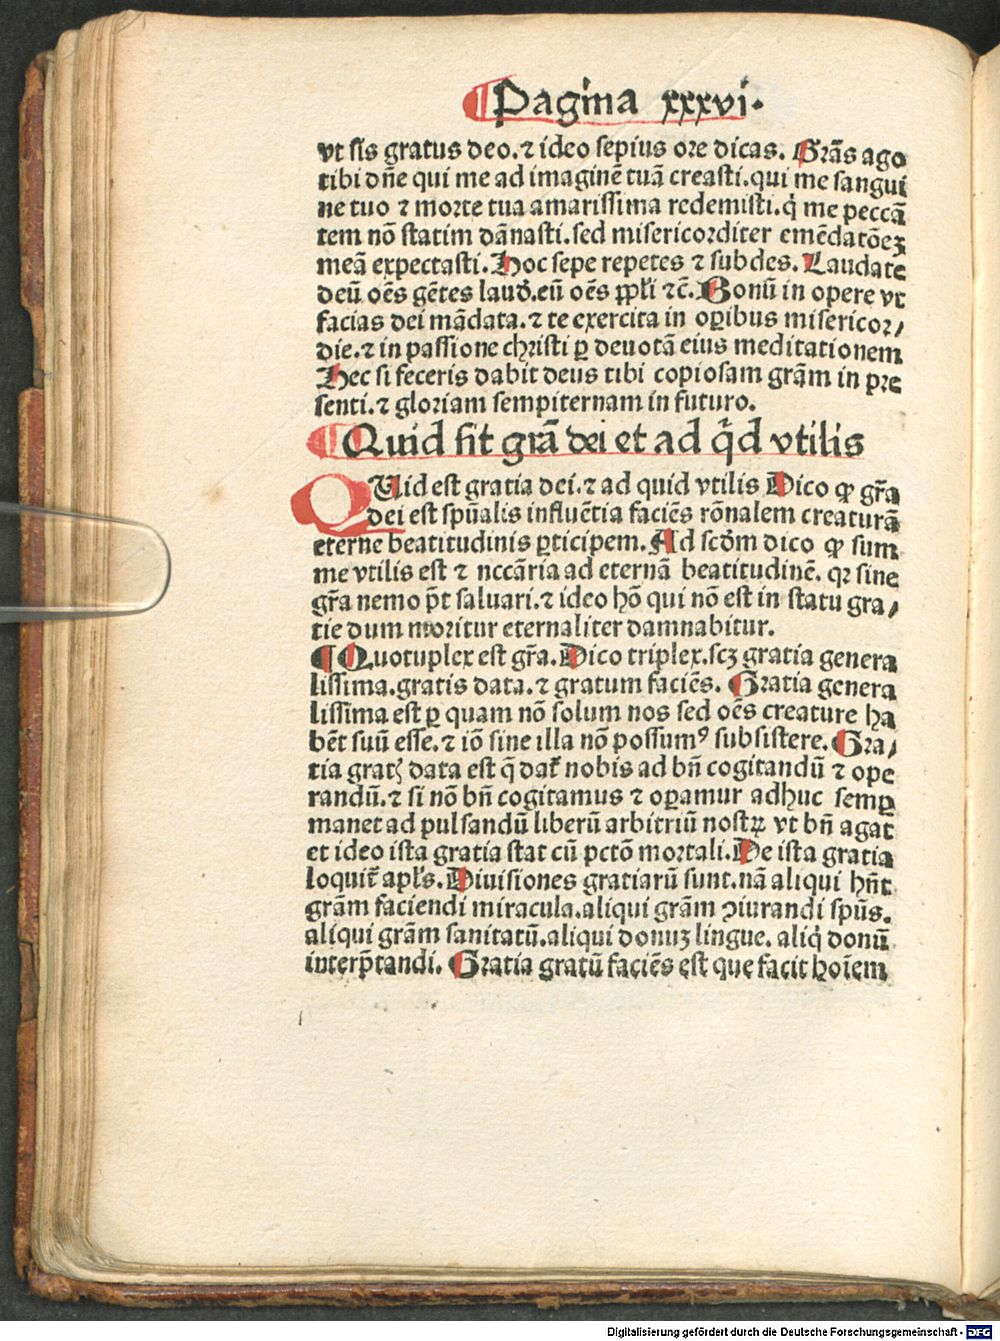 ¶ Pagina xxxvi.
vt sis gratus deo. ⁊ ideo sepius ore dicas. Gr̄as ago
tibi dn̄e qui me ad imaginē tuā creasti. qui me sangui
ne tuo ⁊ morte tua amarissima redemisti. qͥ me peccā
tem nō statim dānasti. sed misericorditer emēdatōeꝫ
meā expectasti. Hoc sepe repetes ⁊ subdes. Laudate
deū oēs gētes laud. eū oēs ꝓpl̄i ⁊c̄. Bonū in opere vt
facias dei mādata. ⁊ te exercita in oꝑibus misericor⸗
die. ⁊ in passione christi ꝑ deuotā eius meditationem
Hec si feceris dabit deus tibi copiosam gr̄am in pre
senti. ⁊ gloriam sempiternam in futuro.
¶ Quid sit gr̄a dei et ad qͥd vtilis
QVid est gratia dei. ⁊ ad quid vtilis Dico ꝙ gr̄a
dei est sp̄ualis influētia faciēs rōnalem creaturā
eterne beatitudinis ꝑticipem. Ad scd̄m dico ꝙ sum
me vtilis est ⁊ nccāria ad eternā beatitudinē. qꝛ sine
gr̄a nemo p̄t saluari. ⁊ ideo hō qui nō est in statu gra⸗
tie dum moritur eternaliter damnabitur.
¶ Quotuplex est gr̄a. Dico triplex. scꝫ gratia genera
lissima. gratis data. ⁊ gratum faciēs. Gratia genera
lissima est ꝑ quam nō solum nos sed oēs creature ha
bēt suū esse. ⁊ iō sine illa nō possumꝰ subsistere. Gra⸗
tia gratꝭ data est q̄ dat᷑ nobis ad bn̄ cogitandū ⁊ ope
randū. ⁊ si nō bn̄ cogitamus ⁊ oꝑamur adhuc semꝑ
manet ad pulsandū liberū arbitriū nostꝝ vt bn̄ agat
et ideo ista gratia stat cū pctō mortali. De ista gratia
loquit᷑ apl̄s. Diuisiones gratiarū sunt. nā aliqui hn̄t
gr̄am faciendi miracula. aliqui gr̄am ꝯiurandi sp̄us.
aliqui gr̄am sanitatū. aliqui donuꝫ lingue. aliqͥ donū
interp̄tandi. Gratia gratū faciēs est que facit hoīem
Digitalisierung gefördert durch die Deutsche Forschungsgemeinschaft - DFG